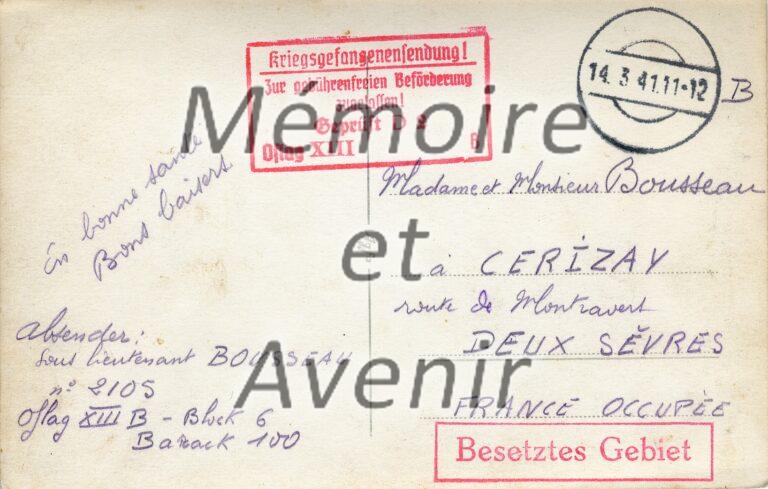 Kriegsgefangenensendung!
Zur gebührenfreien Beförderung
zugelassen!
Geprüft D 2
Oflag XIII B
14. 3. 41. 11-12
B
En bonne santé
Bons baisers
Madame et Monsieur Bousseau
à CERIZAY
route de Montravers
DEUX SÈVRES
FRANCE OCCUPÉE
Absender:
Sous lieutenant BOUSSEAU
n° 2105
Oflag XIII B - Block 6
Barack 100
Besetztes Gebiet
Mémoire
et
Avenir